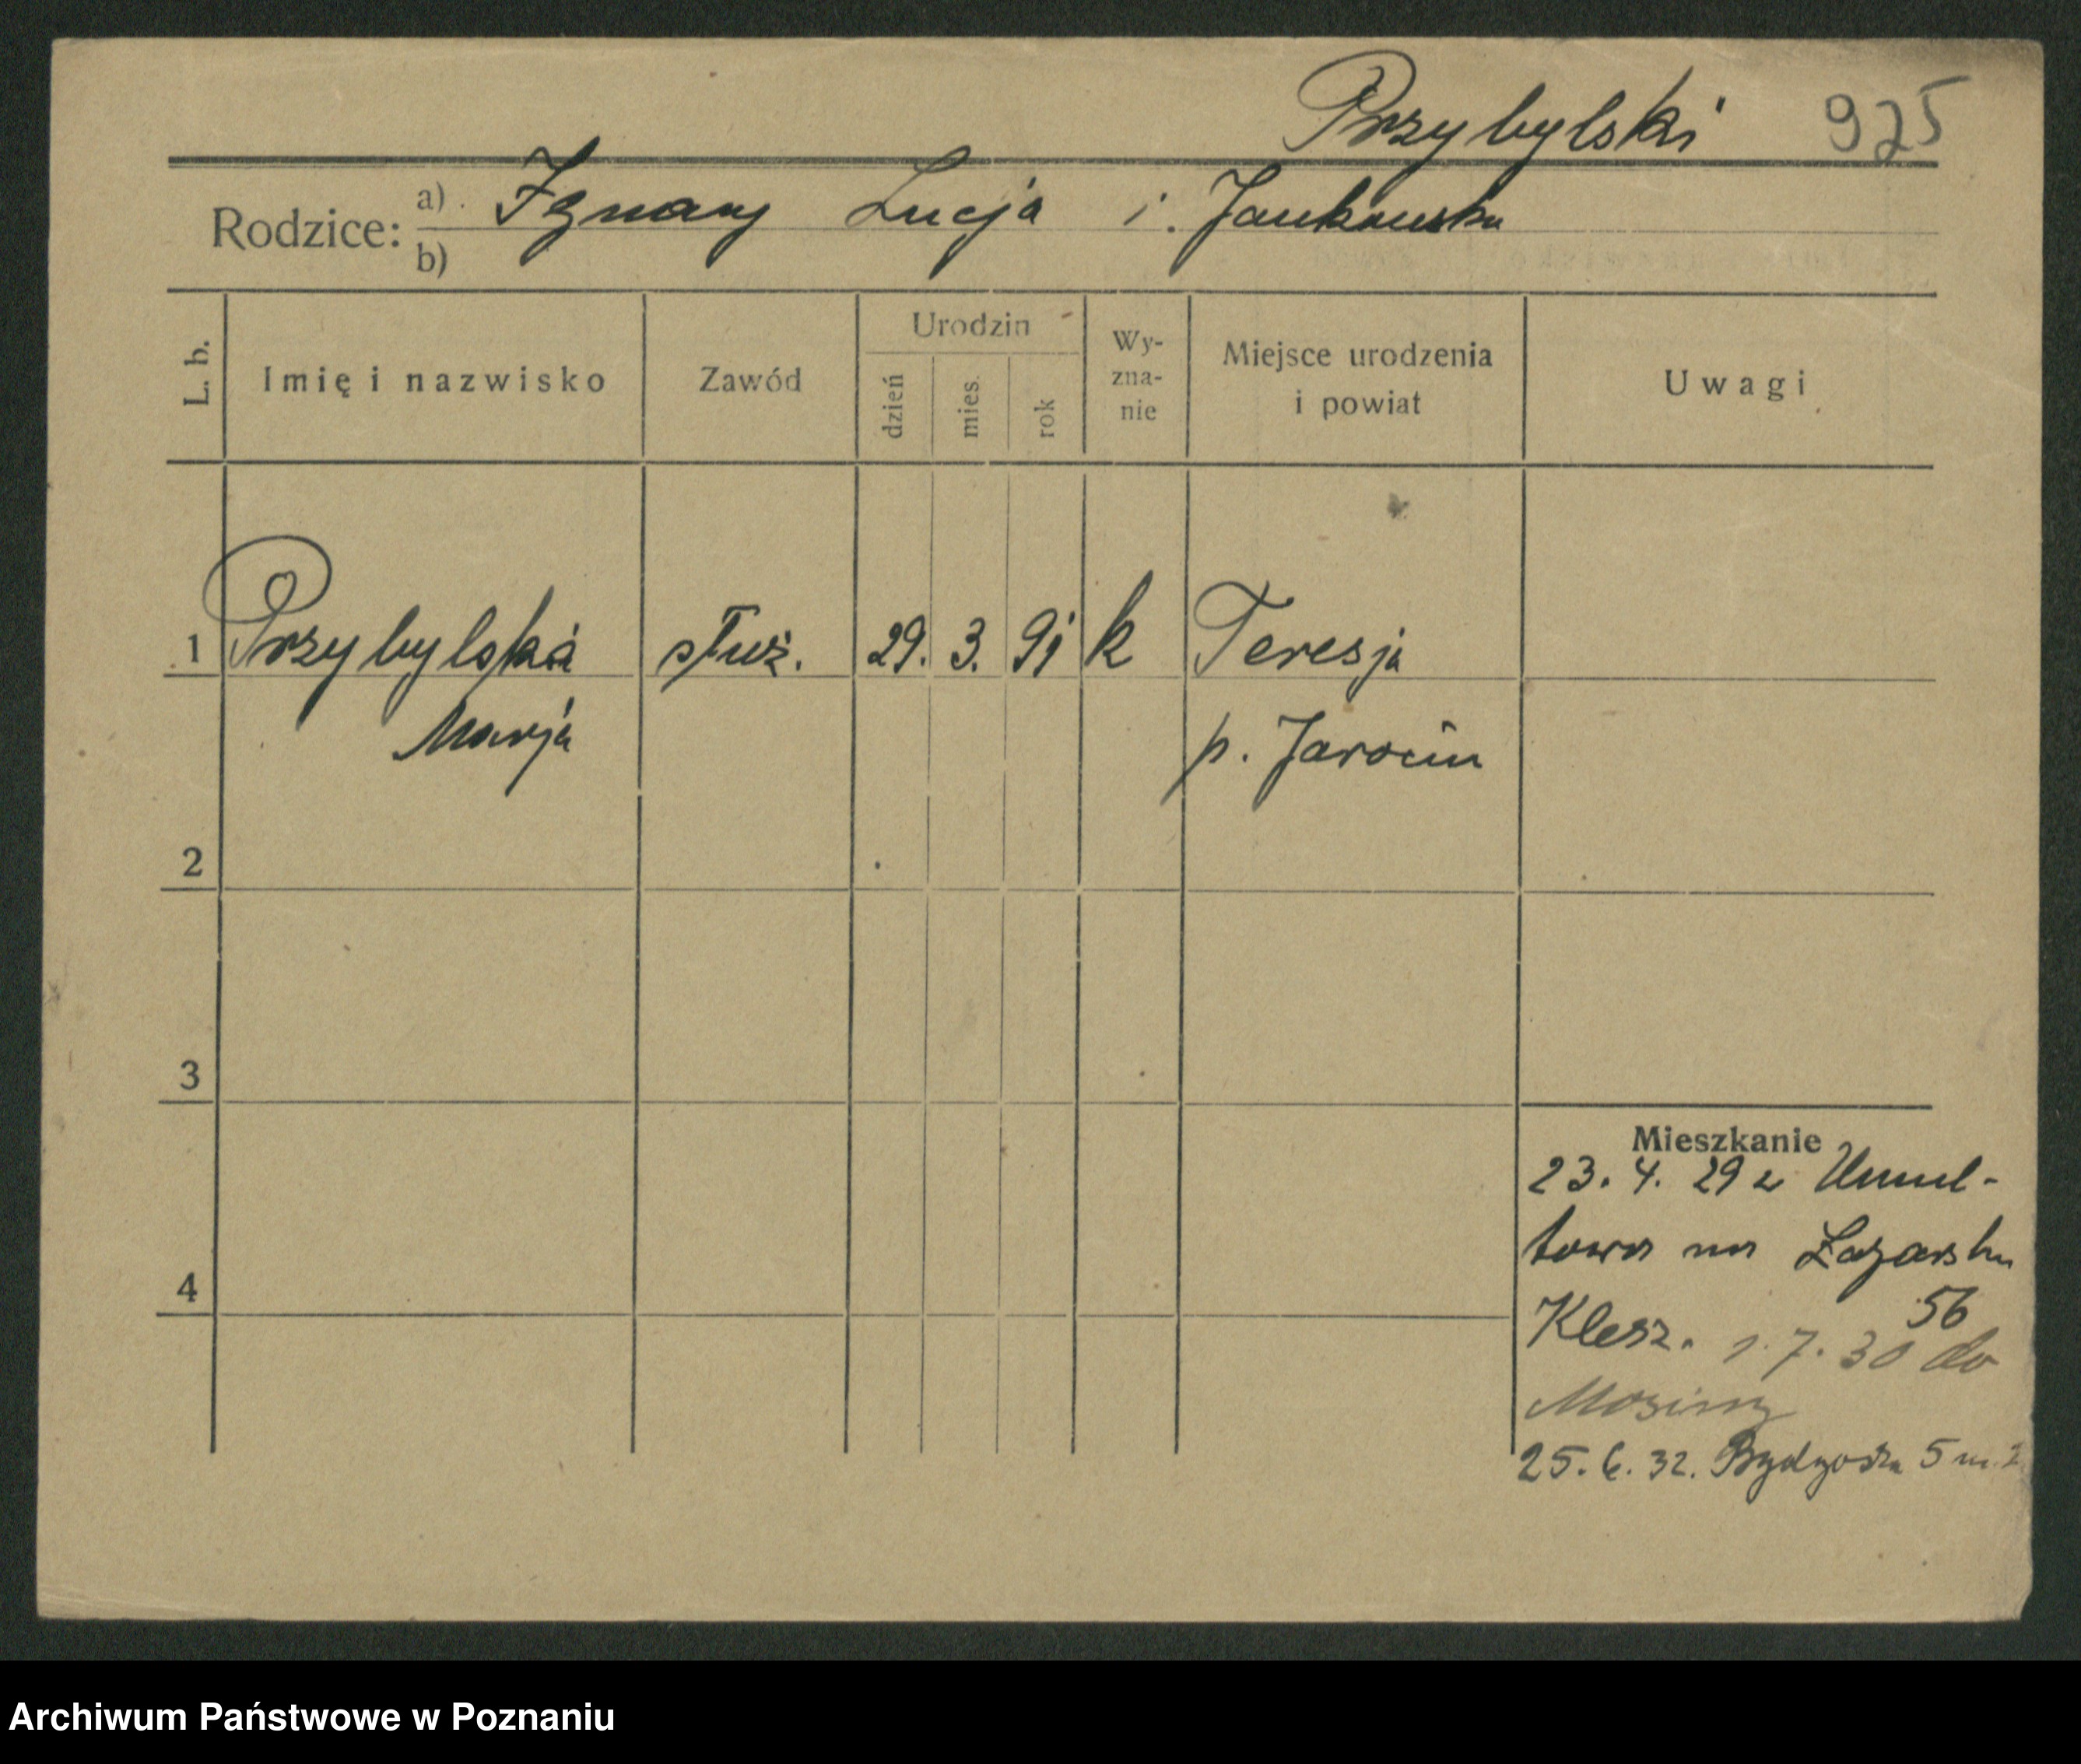 Przybylski 925
Rodzice: a) Ignacy Łucja i. Jankowska
b)
L. b. Imię i nazwisko Zawód Urodzin dzień mies. rok Wy-zna-nie Miejsce urodzenia i powiat Uwagi
1 Przybylska służ. 29. 3. 91 k Teresja
Marja p. Jarocin
2
3
4
Mieszkanie
23. 4. 29 z Umul-
towa na Łazarska
56
Klesz. 1. 7. 30 do
Mosiny
25. 6. 32. Bydgoska 5 m. 2
Archiwum Państwowe w Poznaniu